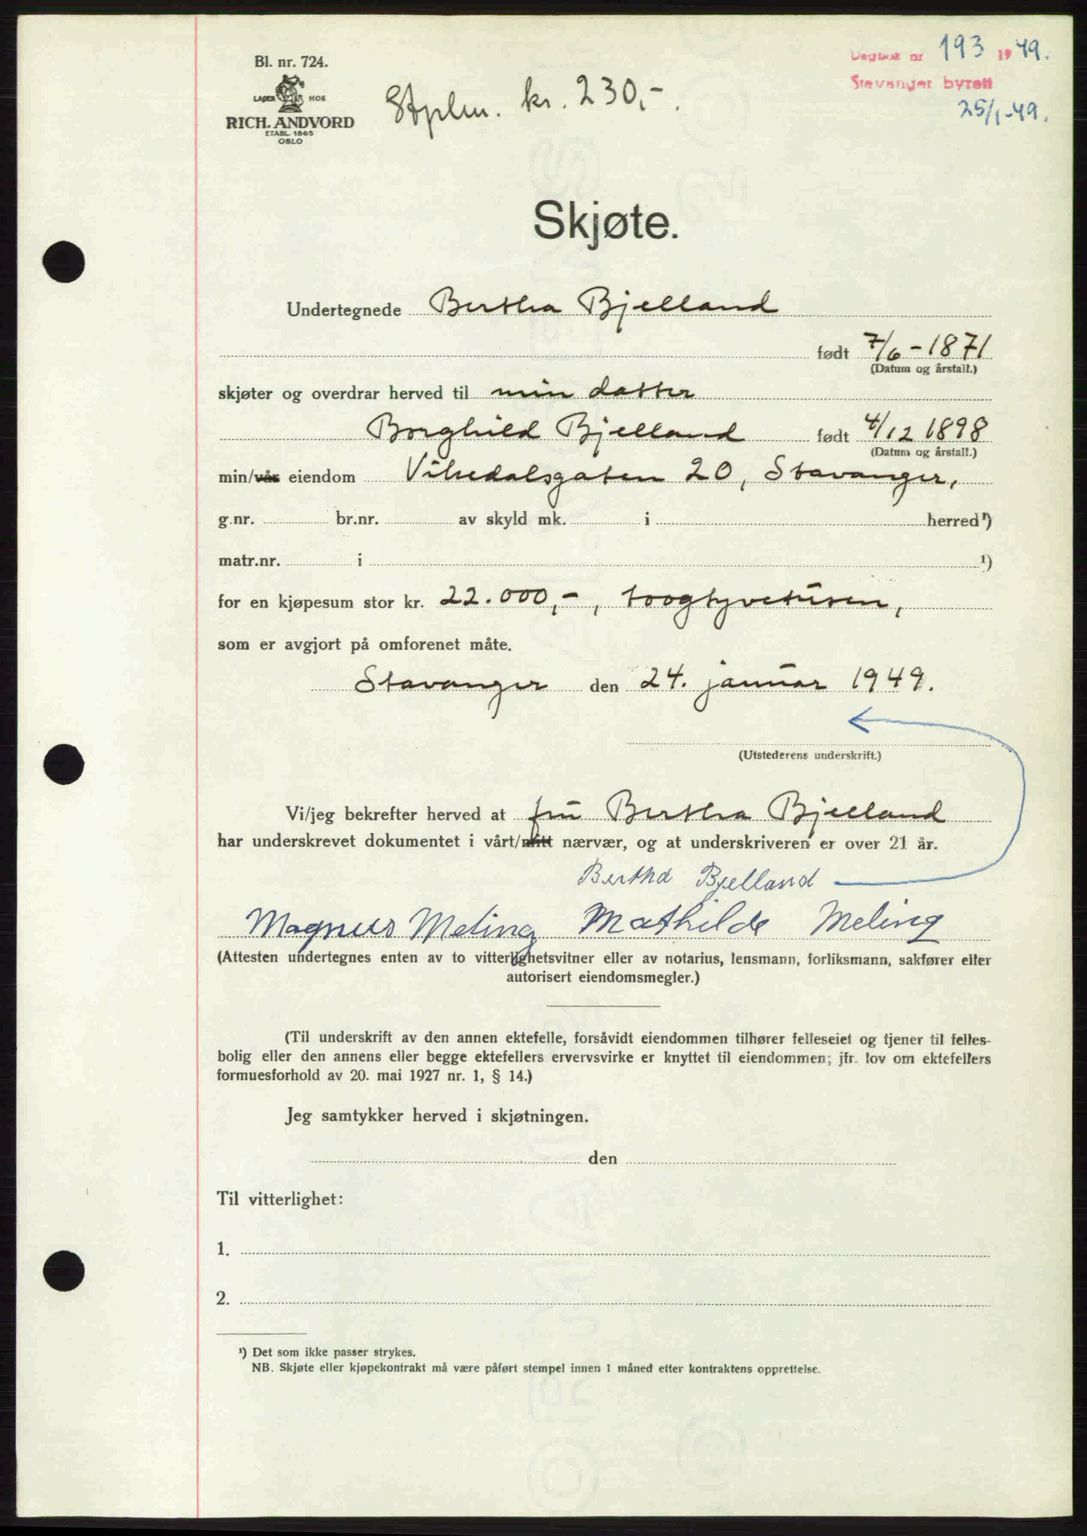 Bl. nr. 724.
LAGER HOS
RICH. ANDVORD
ETABL. 1865
OSLO
Stplm. kr. 230,-.
Dagbok nr 193 1949.
Stavanger byrett
25/1-49.
Skjøte.
Undertegnede Bertha Bjelland
født 7/6-1871
(Datum og årstall.)
skjøter og overdrar herved til min datter
Borghild Bjelland født 4/12 1898
(Datum og årstall.)
min/vår eiendom Vikedalsgaten 20, Stavanger,
g.nr. br.nr. av skyld mk. i herred¹)
matr.nr. i ¹)
for en kjøpesum stor kr. 22.000,-, toogtyvetusen,
som er avgjort på omforenet måte.
Stavanger den 24. januar 1949.
(Utstederens underskrift.)
Vi/jeg bekrefter herved at fru Bertha Bjelland
har underskrevet dokumentet i vårt/mitt nærvær, og at underskriveren er over 21 år.
Bertha Bjelland
Magnus Meling Mathilde Meling
(Attesten undertegnes enten av to vitterlighetsvitner eller av notarius, lensmann, forliksmann, sakfører eller
autorisert eiendomsmegler.)
(Til underskrift av den annen ektefelle, forsåvidt eiendommen tilhører felleseiet og tjener til felles-
bolig eller den annens eller begge ektefellers ervervsvirke er knyttet til eiendommen; jfr. lov om ektefellers
formuesforhold av 20. mai 1927 nr. 1, § 14.)
Jeg samtykker herved i skjøtningen.
den
Til vitterlighet:
1.
2.
¹) Det som ikke passer strykes.
NB. Skjøte eller kjøpekontrakt må være påført stempel innen 1 måned etter kontraktens opprettelse.